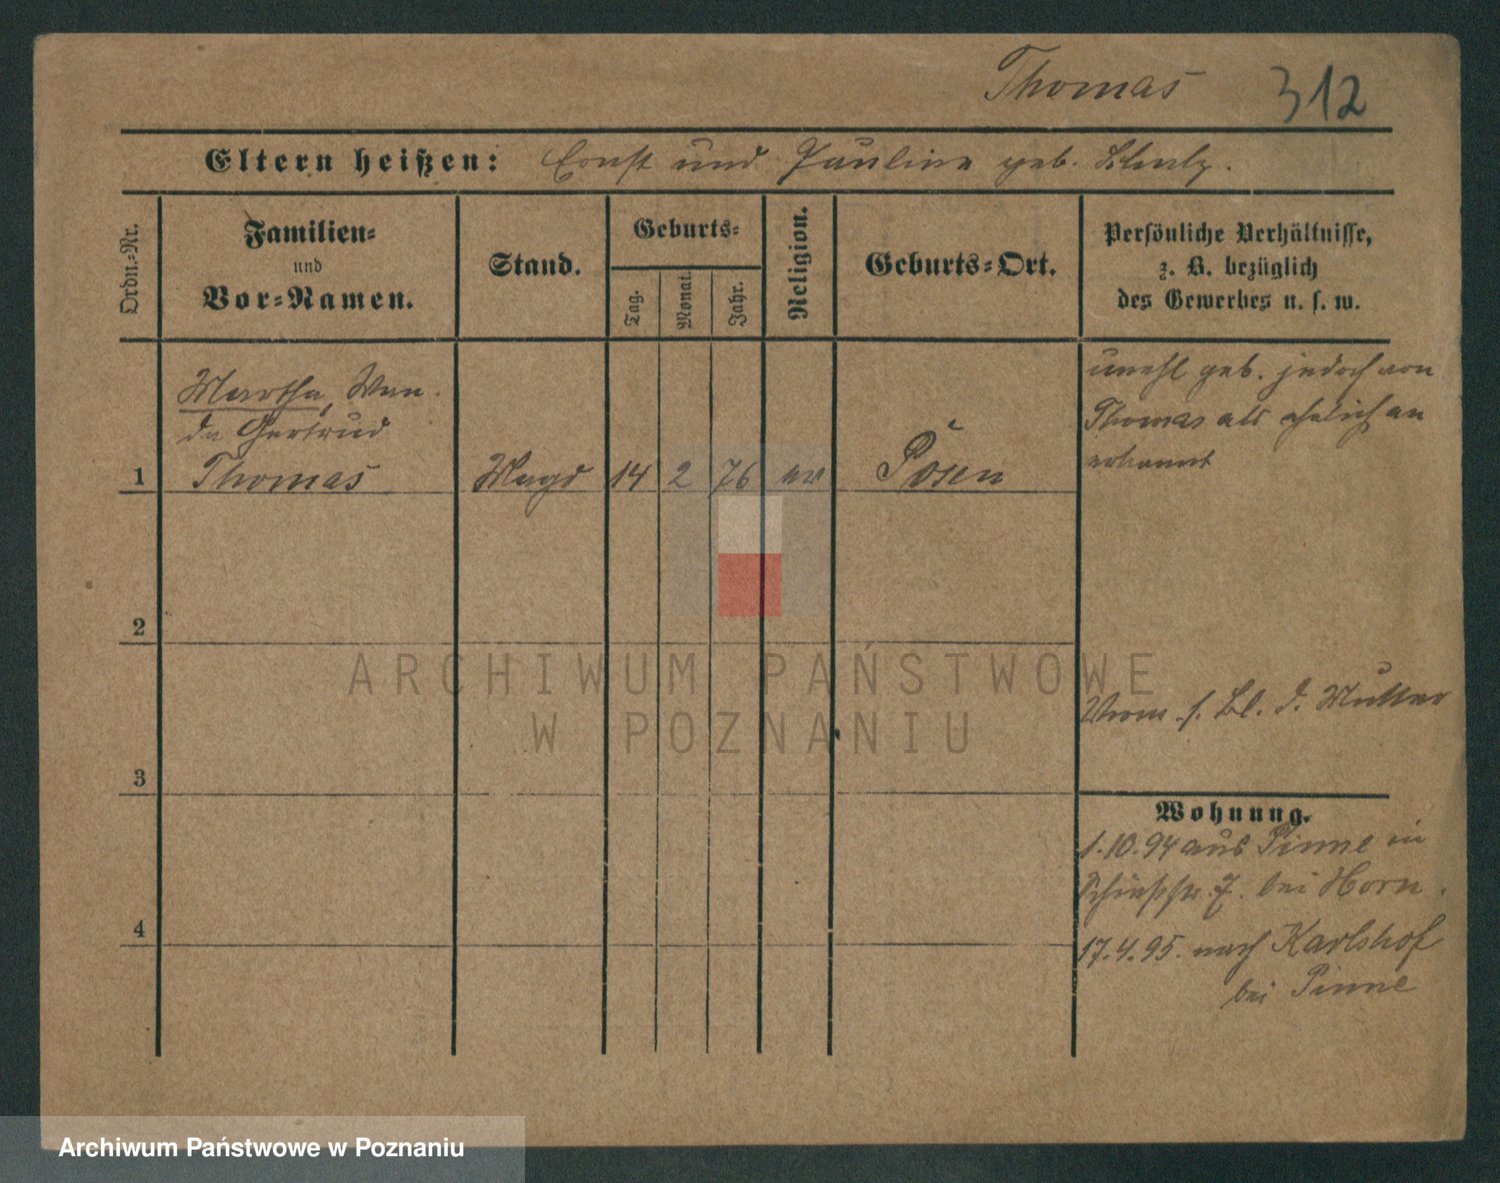 Thomas 312
Eltern heißen: Ernst und Pauline geb. Schulz.
Ordn.-Nr.
Familien-
und
Vor-Namen.
Stand.
Geburts-
Tag.
Monat.
Jahr.
Religion.
Geburts-Ort.
Persönliche Verhältnisse,
z. B. bezüglich
des Gewerbes u. s. w.
Martha, Wan-
da Gertrud
1 Thomas Magd 14 2 76 ev Posen
unehl geb. jedoch von
Thomas als ehelich an
erkannt
2
3
4
s. Bl. d. Mutter
Wohnung.
1.10.94 aus Pinne in
Schießstr. 7. bei Horn.
17.4.95. nach Karlshof
bei Pinne
ARCHIWUM PAŃSTWOWE
W POZNANIU
Archiwum Państwowe w Poznaniu